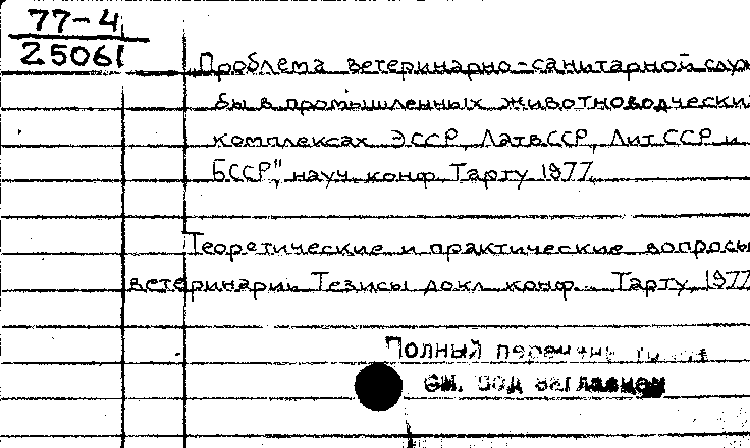 77-4
25061
Проблема ветеринарно-санитарной служ
бы в промышленных животноводчески
комплексах ЭССР, ЛатвССР, ЛитССР и
БССР", науч. конф. Тарту 1977.
Теоретические и практические вопросы
ветеринарии. Тезисы докл. конф. Тарту, 1977
Полный перечень
см. под заглавием